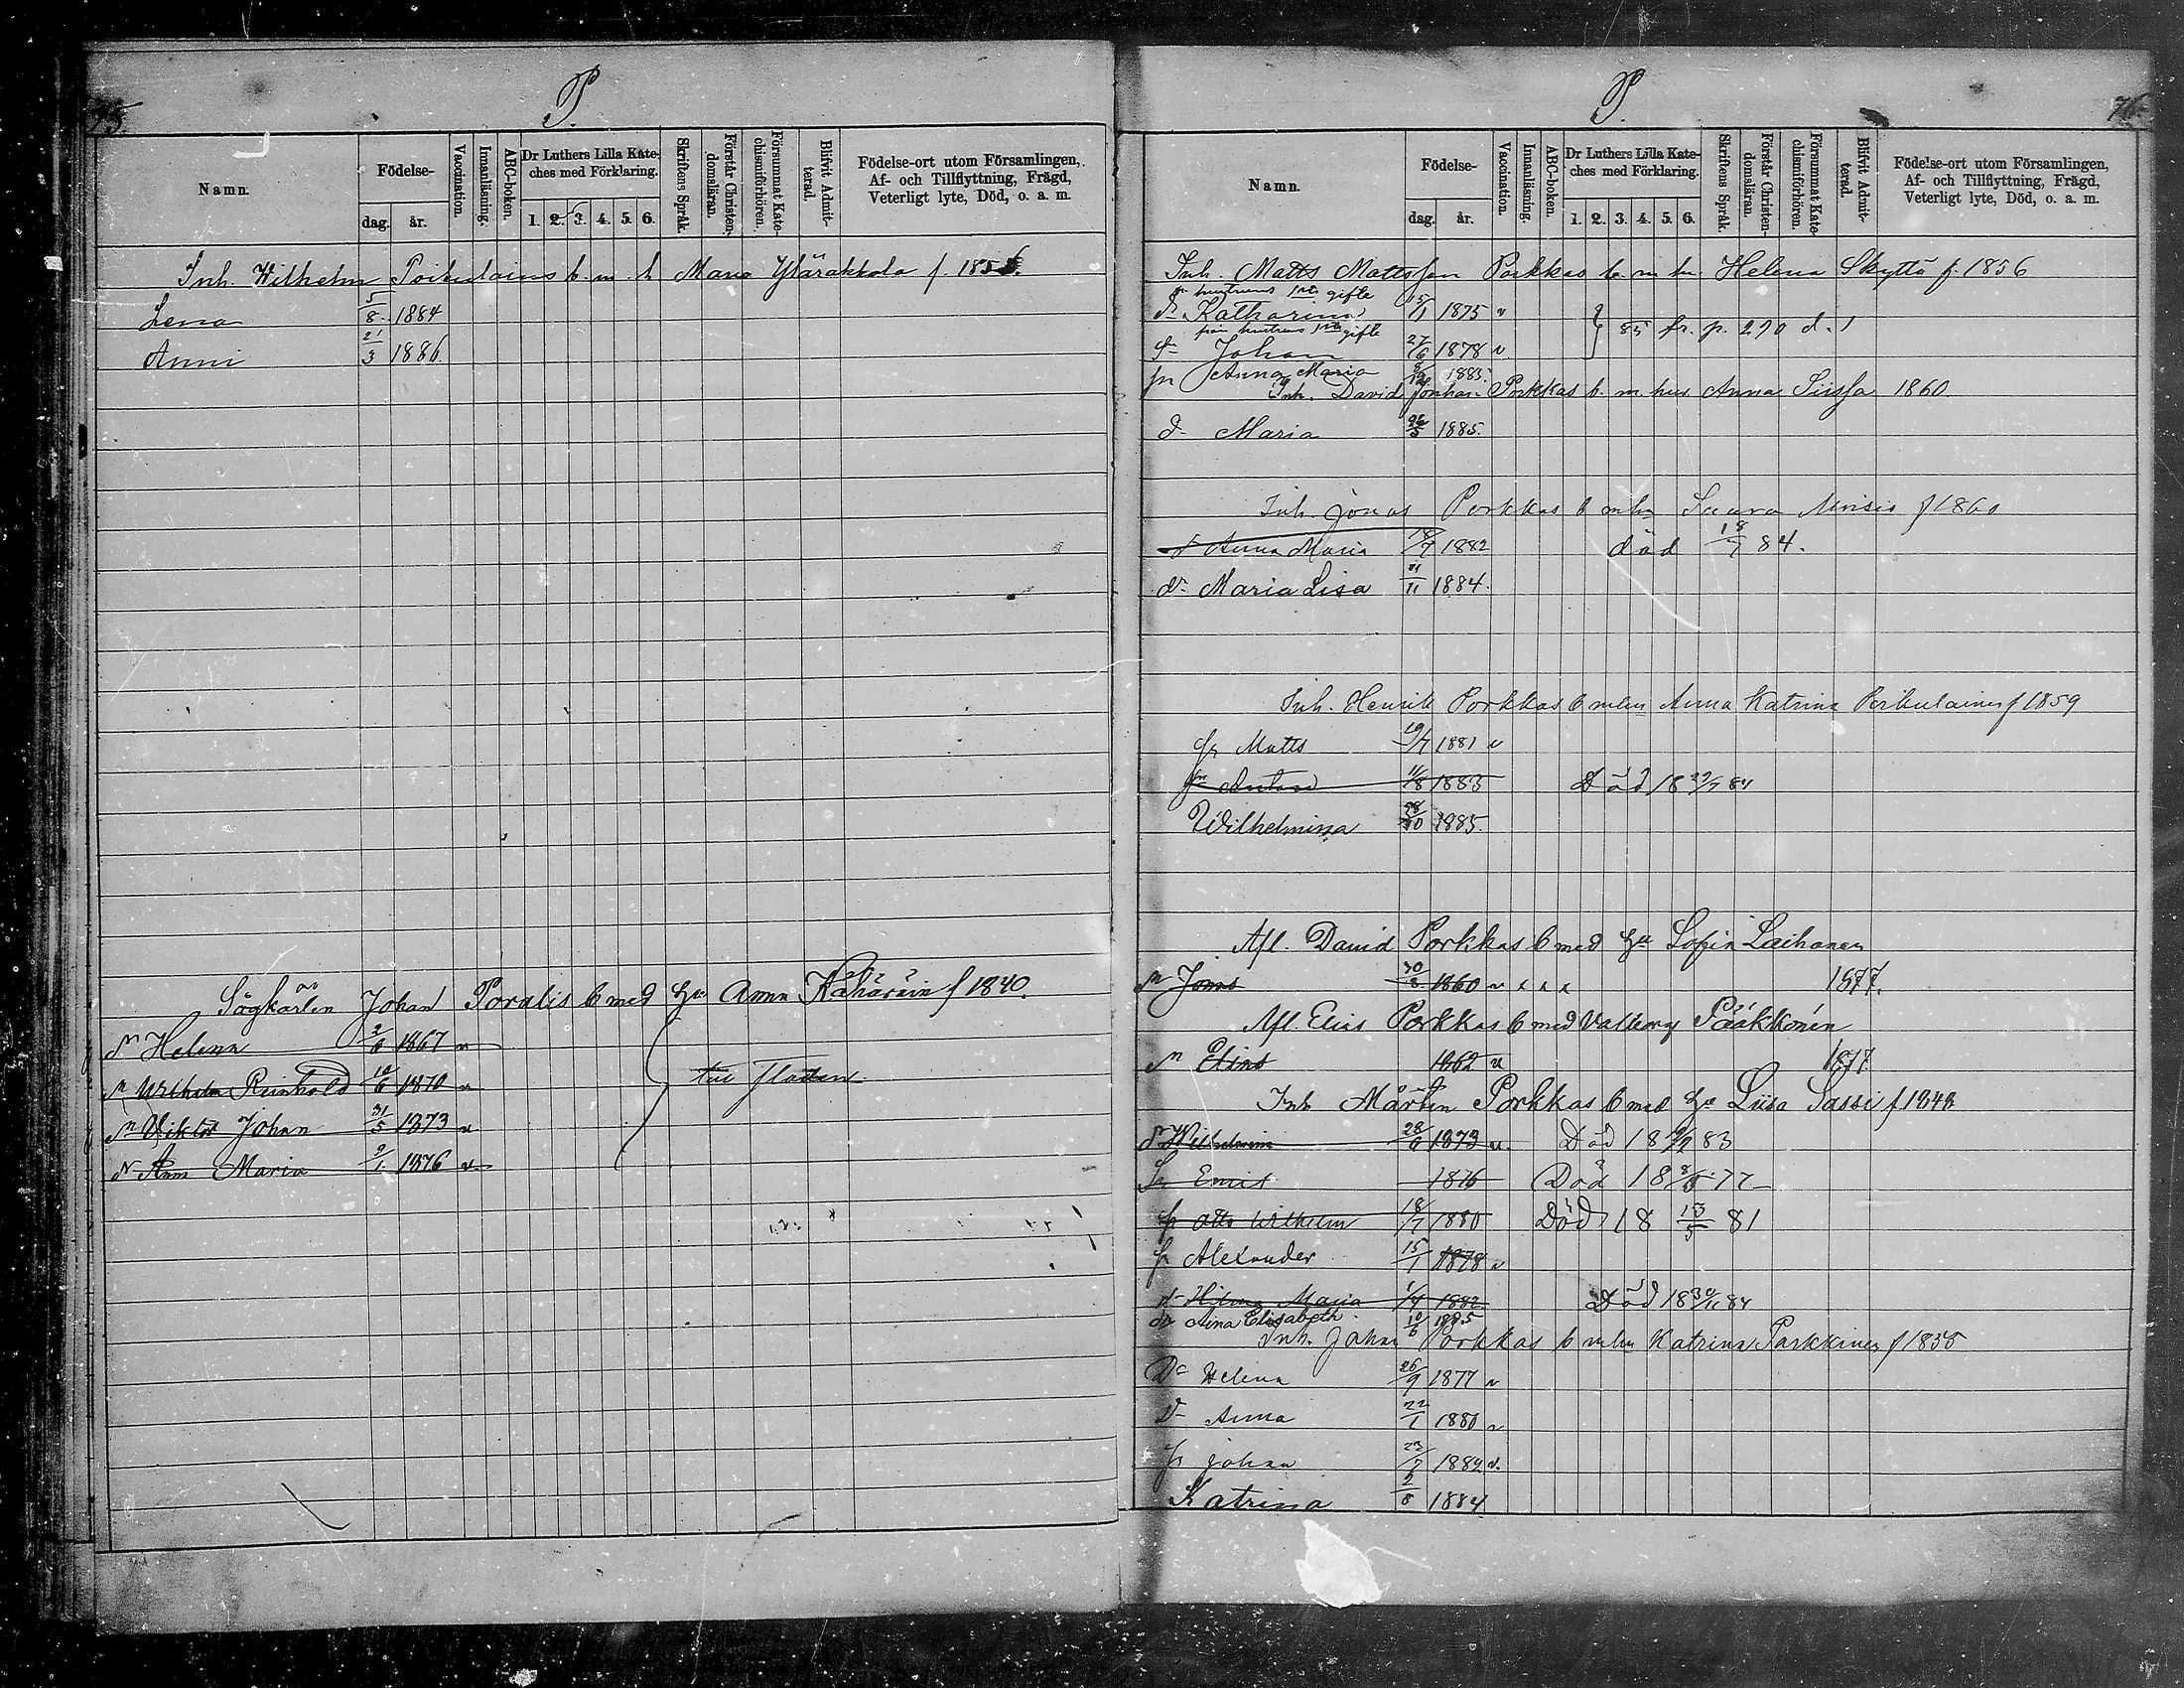 75.
P.
Namn.
Födelse-
dag. år.
Vaccination.
Innanläsning.
ABC-boken.
Dr Luthers Lilla Kate-
ches med Förklaring.
1. 2. 3. 4. 5. 6.
Skriftens Språk.
Förstår Christen-
domsläran.
Försummat Kate-
chismiförhören.
Blifvit Admit-
terad.
Födelse-ort utom Församlingen,
Af- och Tillflyttning, Frägd,
Veterligt lyte, Död, o. a. m.
Inh. Wilhelm Poikulainen b. m. h. Maria Ylärakkola f. 1855.
Lena 5/8 1884
Anni 21/3 1886.
Sågkarlen Johan Poralis b med hu Anna Kähäräin f 1840.
Helena 2/6 1867 v
Wilhelm Reinhold 10/6 1870 v
till Flottan
Viktor Johan 31/5 1873 v
Ann Maria 9/1 1876 v
76
P.
Namn.
Födelse-
dag. år.
Vaccination.
Innanläsning.
ABC-boken.
Dr Luthers Lilla Kate-
ches med Förklaring.
1. 2. 3. 4. 5. 6.
Skriftens Språk.
Förstår Christen-
domsläran.
Försummat Kate-
chismiförhören.
Blifvit Admit-
terad.
Födelse-ort utom Församlingen,
Af- och Tillflyttning, Frägd,
Veterligt lyte, Död, o. a. m.
Inh. Matts Mattsson Porkkas b. m. hu Helena Skyttä f. 1856
hustruns 1sta gifte
dr Katharina 15/11 1875 v
85 fr. p. 290 d. 1
från hustruns 1sta gifte
Sn Johan 27/6 1878 v
Anna Maria 1883.
Inh. David Porkkas b. m. hus. Anna Siissa 1860.
dr Maria 26/3 1885.
Inh. Jonas Porkkas b mhu Saara f 1860
dr Anna Maria 18/7 1882 död 18/7 84.
dr Maria Lisa 11/11 1884.
Inh. Henrik Porkkas b mhu Anna Katrina Poikulainen f 1859
Matts 19/7 1881 v
Anton 11/8 1883 Död 18 29/7 84
Wilhelmina 28/10 1885.
Afl. David Porkkas b med hu Sofia Laihanen
Jonas 30/8 1860 v x x x 1877.
Afl. Elias Porkkas b med Valborg Pääkkönen
Elias 1862 v 1877.
Inh Mårten Porkkas b med hu Liisa Sassi f 1848
Wilhelmina 28/6 1873 v. Död 18 9/2 83
Emil 1876 Död 18 8/5 77
Otto Wilhelm 18/7 1880 Död 18 13/5 81
Alexander 15/1 1878 v
dr Hilma Maria 1/4 1882 Död 18 30/11 84
dr Aina Elisabeth 10/6 1885
Inh. Johan Porkkas b mhu Katrina Parkkinen f 1838
Dr Helena 26/9 1877 v
Dr Anna 22/1 1880 v
Johan 23/7 1882 v.
Katrina 2/8 1884